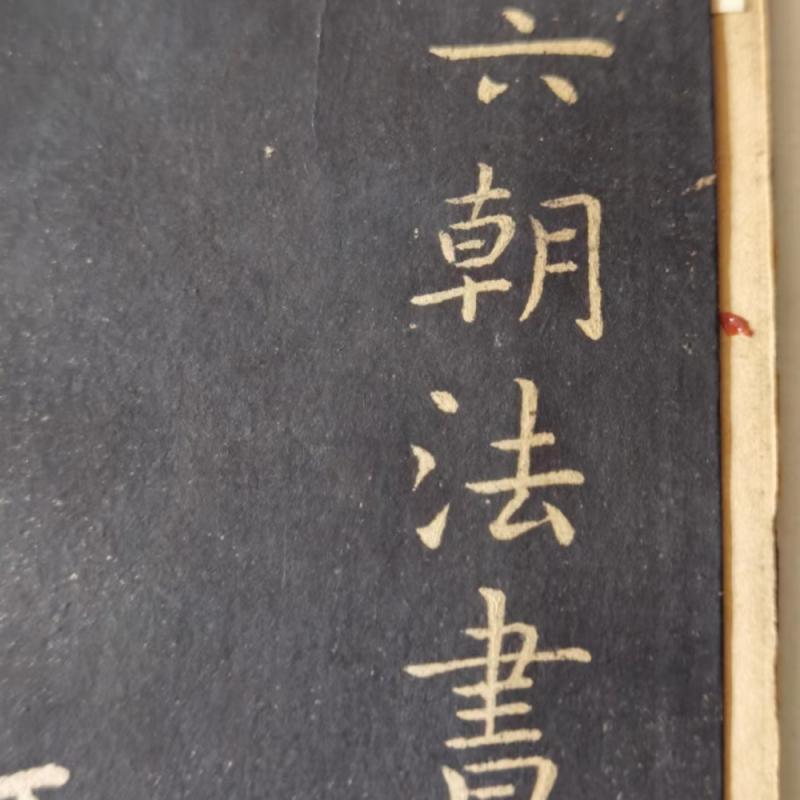 六朝法書